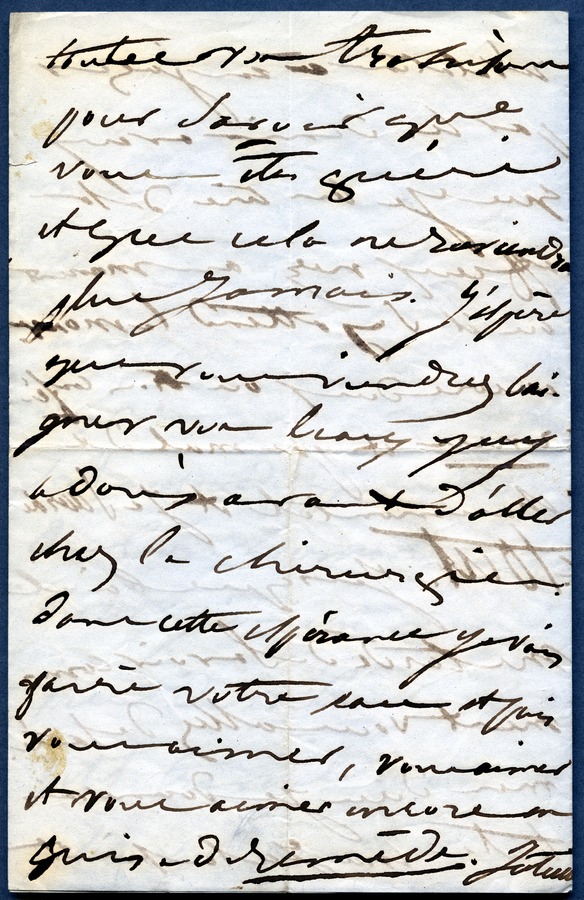 toutes vos trahisons
pour savoir que
vous êtes guéri
et que cela ne reviendra
plus jamais. j'espère
que vous viendrez bai-
gner vos beaux yeux
adorés avant d'aller
chez le chirurgien.
dans cette espérance je vais
faire votre eau et puis
vous aimer, vous aimer
et vous aimer encore en
guise de remède.